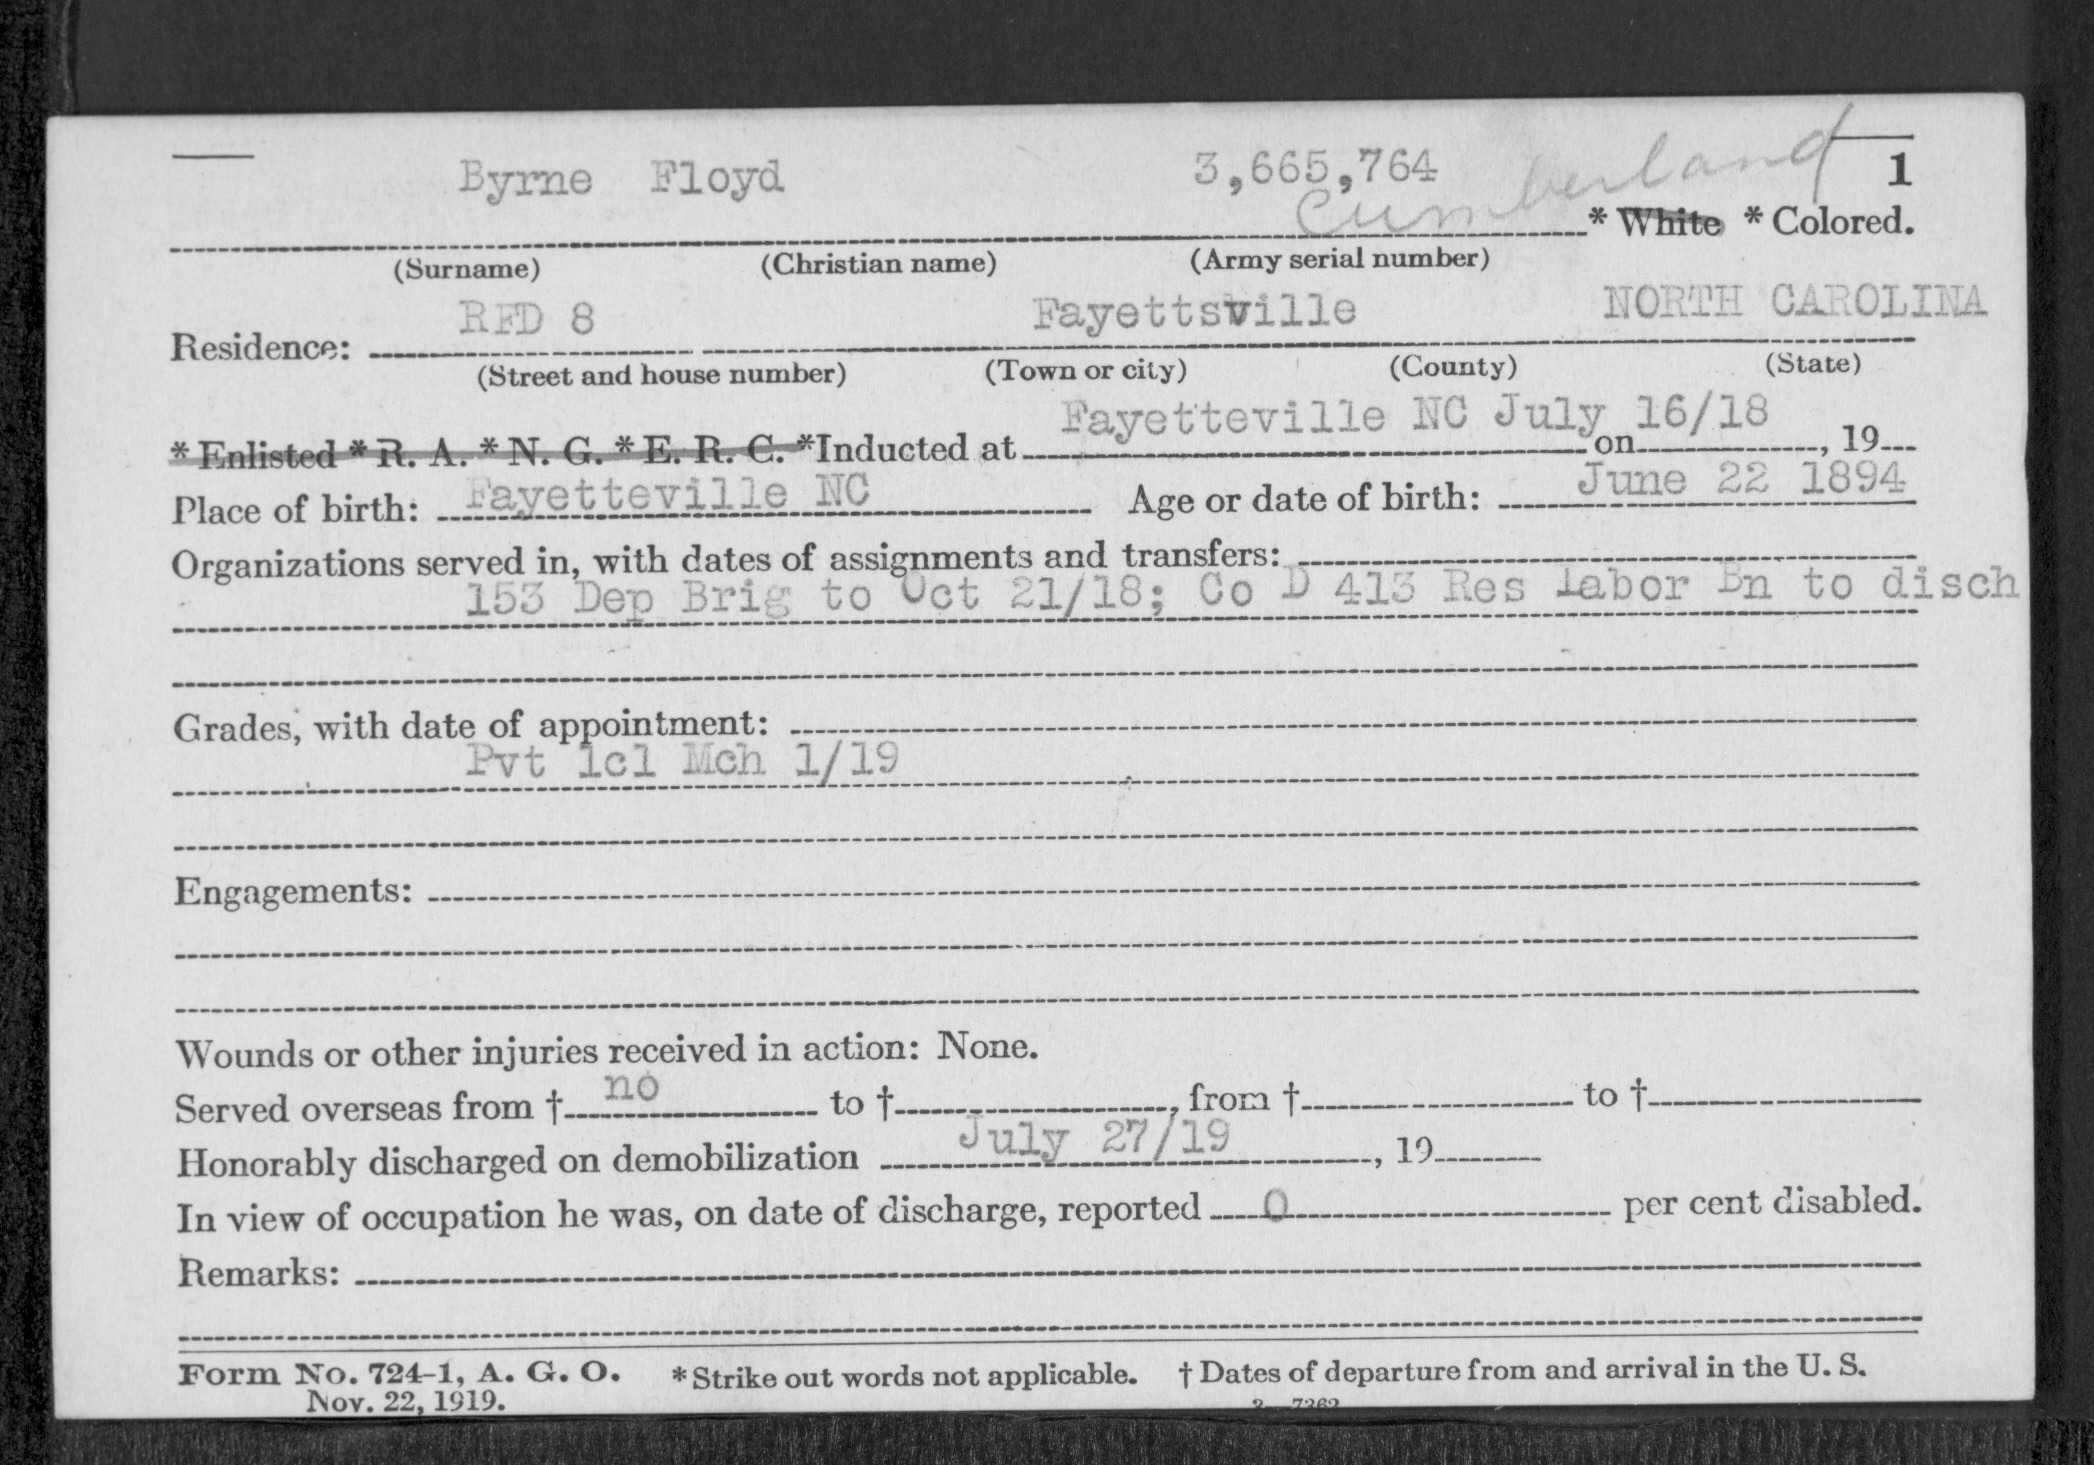 Byrne Floyd 3,665,764 Cumberland 1
* White * Colored.
(Surname) (Christian name) (Army serial number)
RFD 8 Fayettsville NORTH CAROLINA
Residence:
(Street and house number) (Town or city) (County) (State)
Fayetteville NC July 16/18
* Enlisted * R. A. * N. G. * E. R. C. *Inducted at on , 19
Place of birth: Fayetteville NC Age or date of birth: June 22 1894
Organizations served in, with dates of assignments and transfers:
153 Dep Brig to Oct 21/18; Co D 413 Res Labor Bn to disch
Grades, with date of appointment:
Pvt 1cl Mch 1/19
Engagements:
Wounds or other injuries received in action: None.
Served overseas from † no to † , from † to †
Honorably discharged on demobilization July 27/19 , 19
In view of occupation he was, on date of discharge, reported 0 per cent disabled.
Remarks:
Form No. 724-1, A. G. O. * Strike out words not applicable. † Dates of departure from and arrival in the U. S.
Nov. 22, 1919. 3—7362